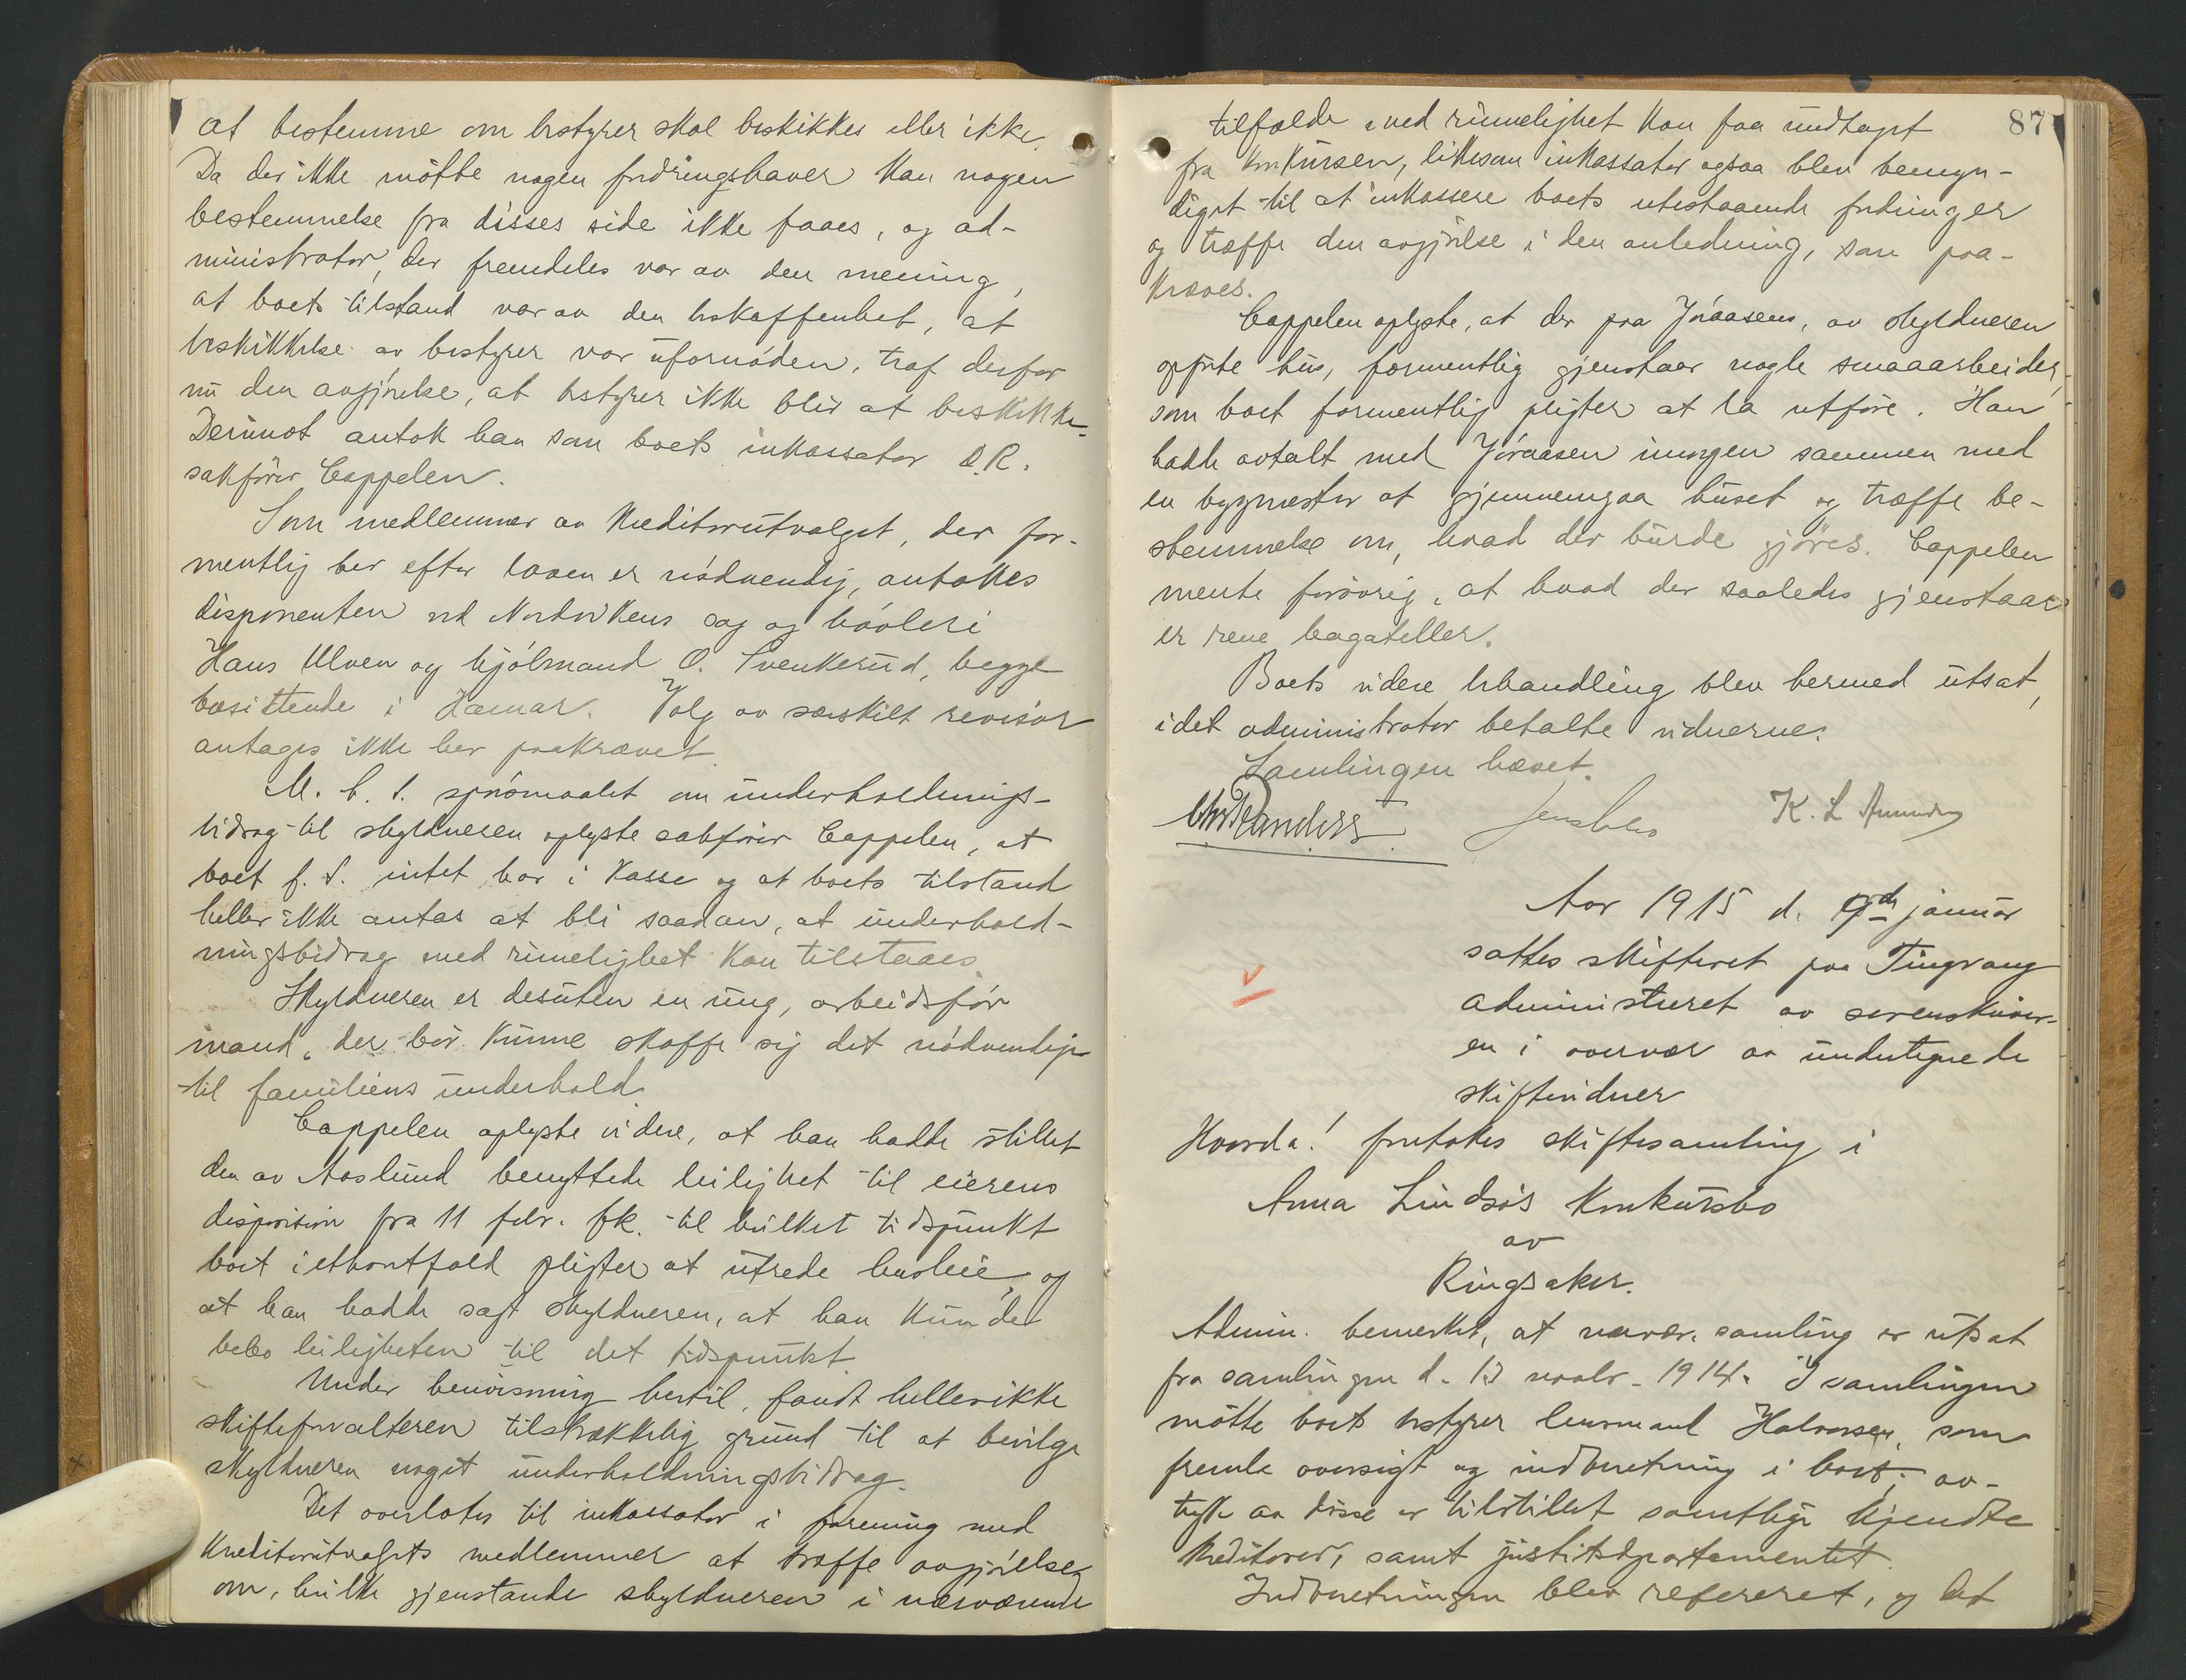 at bestemme om bestyrer skal beskikkes eller ikke.
Da der ikke møtte nogen fordringshaver kan nogen
bestemmelse fra disses side ikke faaes, og ad-
ministrator, der fremdeles var av den mening,
at boets tilstand var av den beskaffenhet, at
beskikkelse av bestyrer var ufornøden, traf derfor
nu den avgjørelse, at bestyrer ikke blir at beskikke.
Derimot antok han som boets inkassator O.R.
sakfører Cappelen.
Som medlemmer av kreditorutvalget, der for-
mentlig her efter loven er nødvendig, antokes
disponenten ved Nordvikens sag og høvleri
Hans Ulven og hjólmand O. Svenkerud, begge
bosittende i Hamar. Valg av særskilt revisor
antages ikke her paakrævet.
M. h. t. spørsmaalet om underholdnings-
bidrag til skyldneren oplyste sakfører Cappelen, at
boet f. t. intet har i kasse og at boets tilstand
heller ikke antas at bli saadan, at underhold-
ningsbidrag med rimelighet kan tilstaaes.
Skyldneren er desuten en ung, arbeidsfør
mand, der bør kunne skaffe sig det nødvendige
til familiens underhold.
Cappelen oplyste videre, at han hadde stillet
den av Aaslund benyttede leilighet til eierens
disposition fra 11 febr. fk. til hvilket tidspunkt
boet i ethvertfald pligter at utrede husleie, og
at han hadde sagt skyldneren, at han kunde
bebo leiligheten til det tidspunkt.
Under henvisning hertil, fandt heller ikke
skifteforvalteren tilstrækkelig grund til at bevilge
skyldneren noget underholdningsbidrag.
Det overlates til inkassator i forening med
kreditorutvalgets medlemmer at træffe avgjørelse
om, hvilke gjenstande skyldneren i nærværende
87
tilfælde med rimelighet kan faa undtaget
fra konkursen, likesom inkassator ogsaa blev bemyn-
diget til at inkassere boets utestaaende fordringer
og træffe den avgjørelse i den anledning, som paa-
kræves.
Cappelen oplyste, at der paa Jøraasens, av skyldneren
opførte hus, formentlig gjenstaar nogle smaaarbeider,
som boet formentlig pligter at la utføre. Han
hadde avtalt med Jøraasen imorgen sammen med
en bygmester at gjennemgaa huset og træffe be-
stemmelse om, hvad der burde gjøres. Cappelen
mente forøvrig, at hvad der saaledes gjenstaar
er rene bagateller.
Boets videre behandling blev hermed utsat,
idet administrator betalte vidnerne.
Samlingen hævet.
K. L. Amundsen
Aar 1915 d. 9de januar
sattes skifteret paa Tingvang
administreret av sorenskriver-
en i overvær av undertegnede
skiftevidner
Hvorda! foretokes skiftesamling i
Anna Lindsøs konkursbo
av
Ringsaker.
Admin. bemerket, at nærvær. samling er utsat
fra samlingen d. 13 novbr. 1914. I samlingen
møtte boets bestyrer lensmand Halvorsen, som
fremla oversigt og indberetning i boet; av-
tryk av disse er tilstillet samtlige kjendte
kreditorer, samt justitsdepartementet.
Indberetningen blev refereret, og det